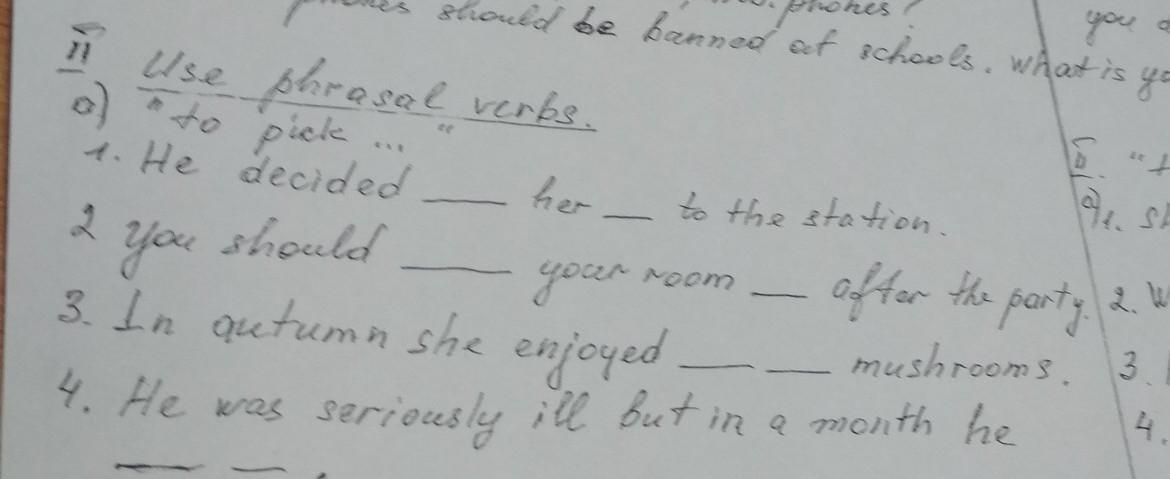 should be banned at schools. What is
phones?
you
II Use phrasal verbs.
a) "to pick ..."
1. He decided ___ her __ to the station.
2 You should ___ your room __ after the party.
3. In autumn she enjoyed ___ ___ mushrooms.
4. He was seriously ill but in a month he
___ __.
II. "
a) 1.
2.
3.
4.